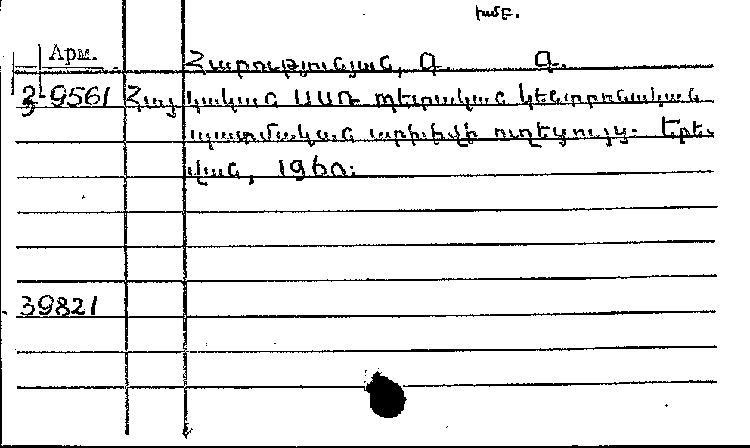 խմբ.
Арм.
Հարությունյան, Գ. Գ.
3-9561 Հայկական ՍՍՌ պետական կենտրոնական
պատմական արխիվի ուղեցույց. Երե-
վան, 1960։
39821